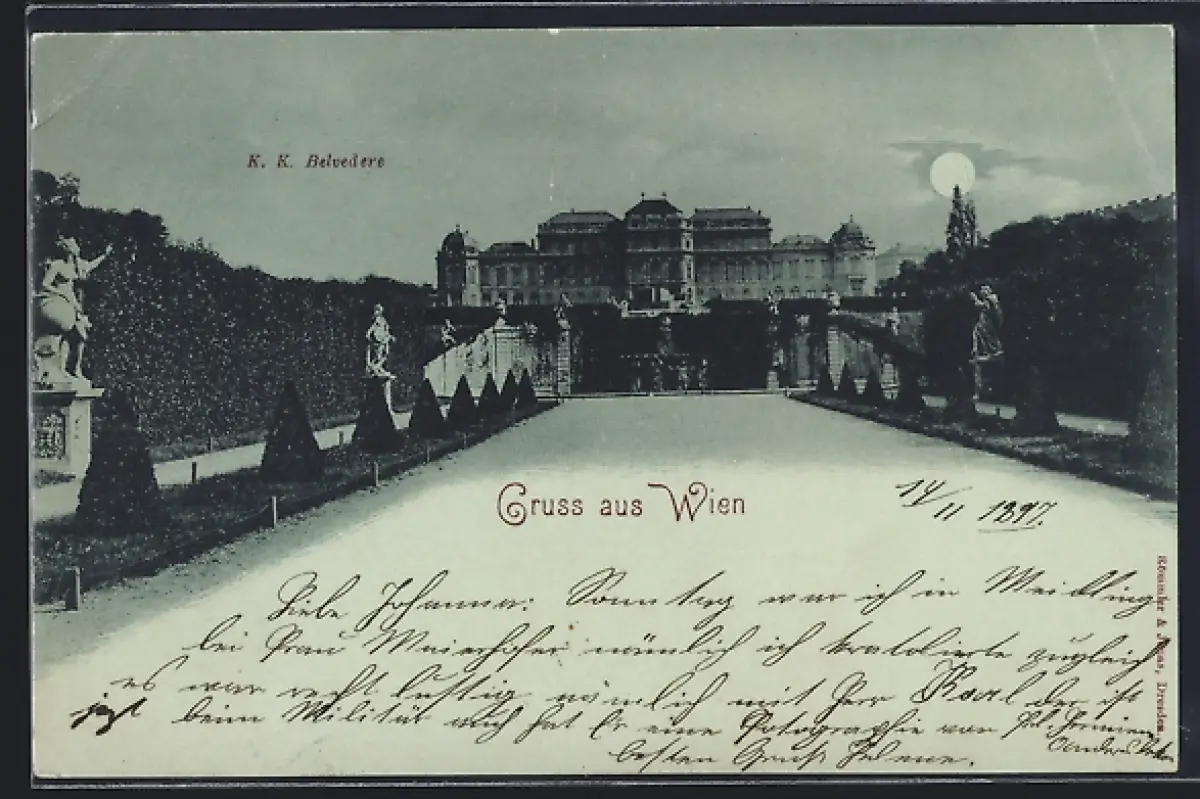 K. K. Belvedere
Gruss aus Wien
14/11 1897.
Liebe Johanna: Sonntag war ich in Meidling
bei Frau Maierhofer nämlich ich kratolierte zugleich
es war recht lustig nämlich mit Herr Karl der ist
jezt beim Militär auch hat Er eine Potographie von
besten Gruß Helene.
Römmler & Jonas, Dresden.